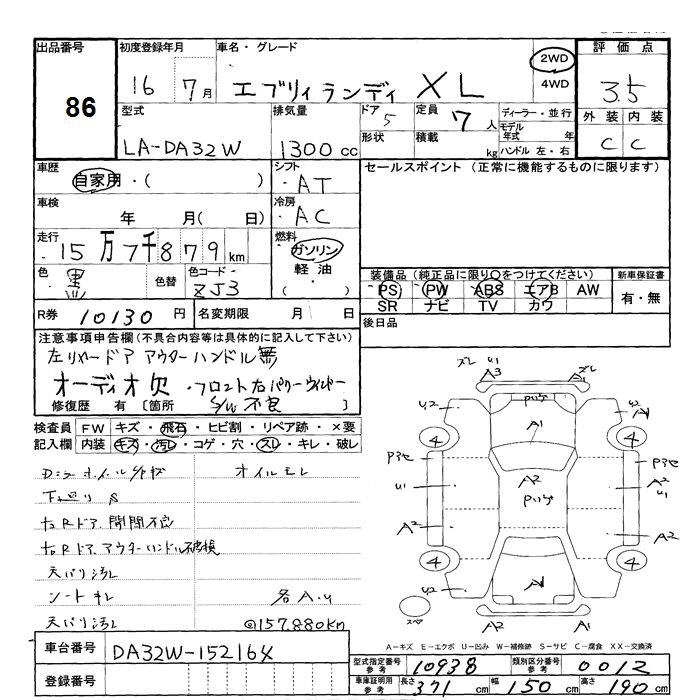 出品番号
86
初度登録年月
16 7月
車名・グレード
エブリィランディ XL
2WD
4WD
評価点
3.5
外装 内装
C C
型式
LA-DA32W
排気量
1300cc
ドア
5
定員
7人
形状
積載
kg
ディーラー・並行
モデル年式 年
ハンドル 左・右
車歴
自家用・( )
シフト
・AT
セールスポイント (正常に機能するものに限ります)
車検
年 月( 日)
冷房
・AC
走行
・15万7千879km
燃料
ガソリン
軽油
・( )
色
黒
色替
色コード
ZJ3
装備品(純正品に限り○をつけてください)
PS PW ABS エアB AW
SR ナビ TV カワ
新車保証書
有・無
R券 10130円
名変期限 月 日
後日品
注意事項申告欄(不具合内容等は具体的に記入して下さい)
左リヤードア アウターハンドル無
オーディオ欠 ・フロント左パワーウィンドー
S/W不良
修復歴 有 [箇所 ]
検査員 FW キズ・飛石・ヒビ割・リペア跡・×要
記入欄 内装 キズ・汚レ・コゲ・穴・スレ・キレ・破レ
オイルモレ
下廻りS
右Rドア 開閉不良
右Rドア アウターハンドル破損
天バリ汚レ
シートキレ 各A.U
天バリ汚レ @157,880km
ズレ U1 A3 ズレ A1
U2 U2 A1
A1
4 4
U1 A2 A2 U1
A2 A2
4 4
U2 A1
A2 A1
スペア
A-キズ E-エクボ U-凹み W-補修跡 S-サビ C-腐食 XX-交換済
車台番号
DA32W-152164
登録番号
型式指定番号 参考 10938
類別区分番号 参考 0012
車庫証明用 参考 長さ 371cm 幅 150cm 高さ 190cm